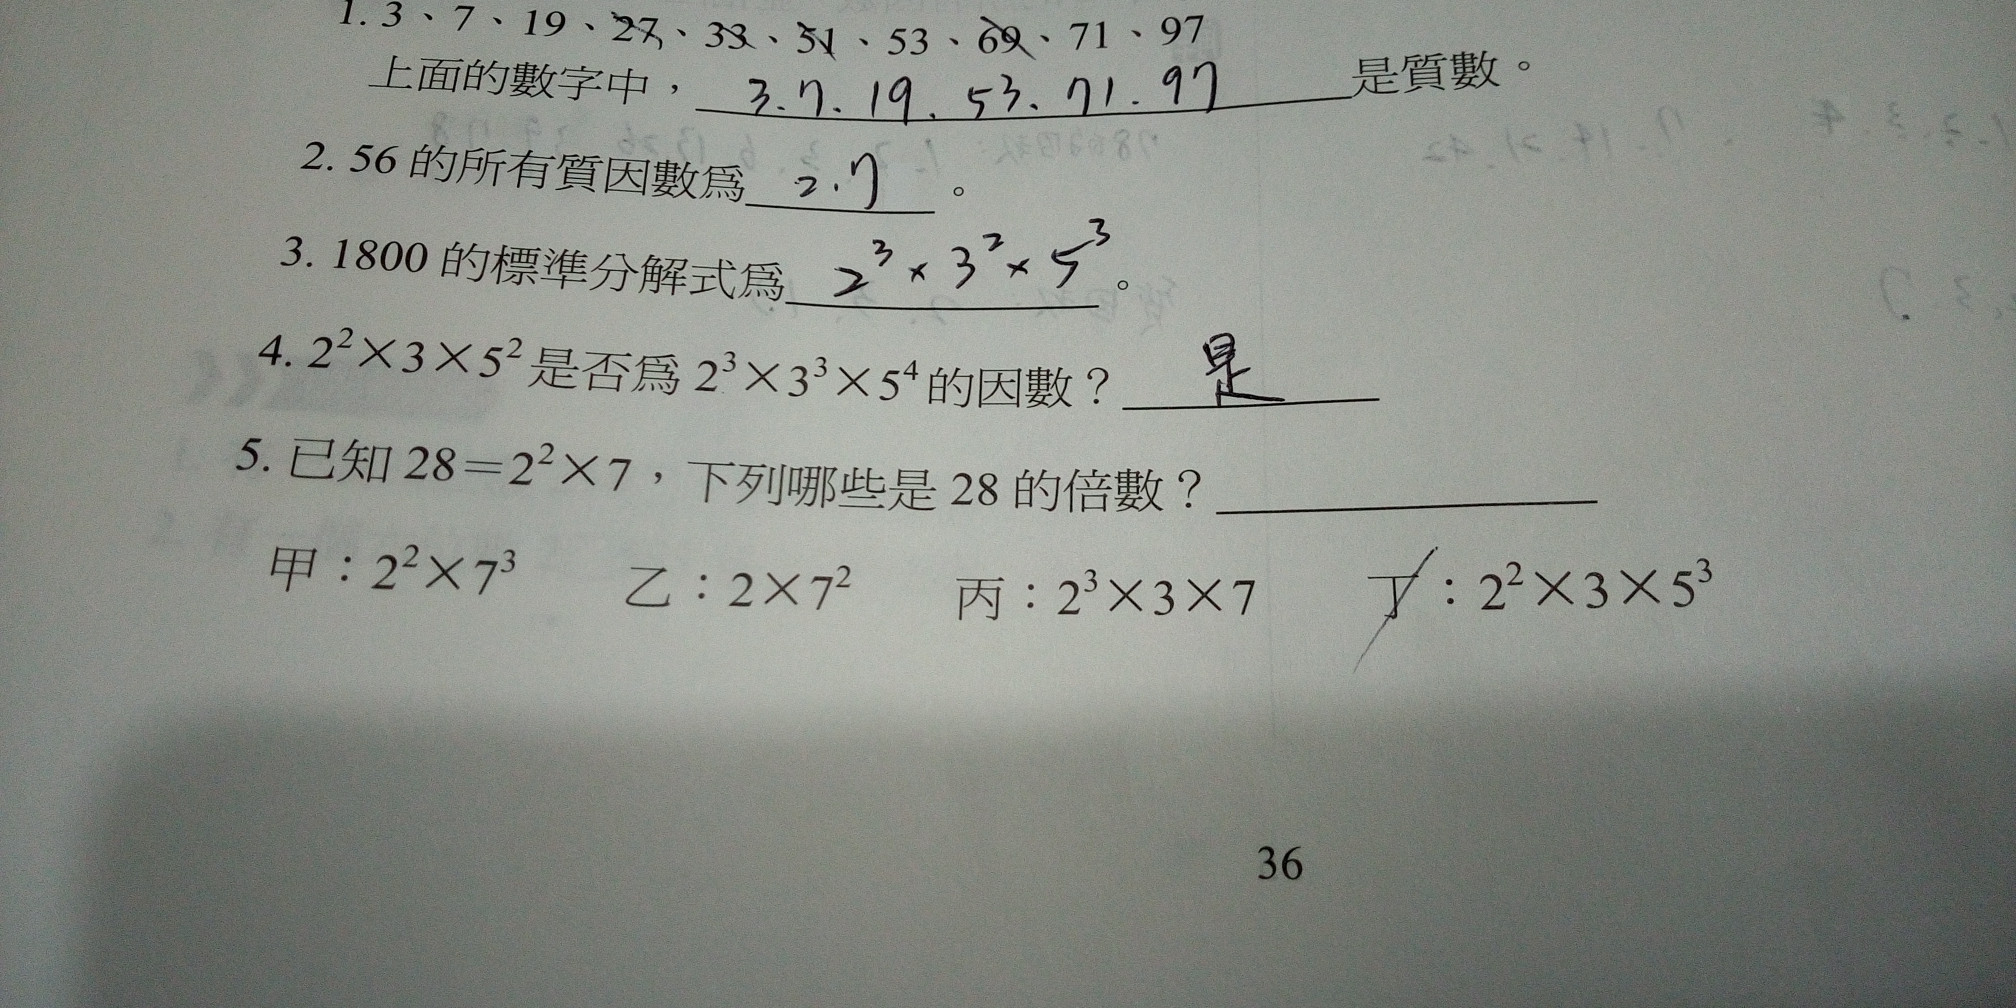 1. 3、7、19、27、33、51、53、69、71、97
上面的數字中，3.7.19.53.71.97是質數。
2. 56 的所有質因數為 2.7。
3. 1800 的標準分解式為 2³×3²×5³。
4. 2²×3×5² 是否為 2³×3³×5⁴ 的因數？是
5. 已知 28＝2²×7，下列哪些是 28 的倍數？
甲：2²×7³ 乙：2×7² 丙：2³×3×7 丁：2²×3×5³
36